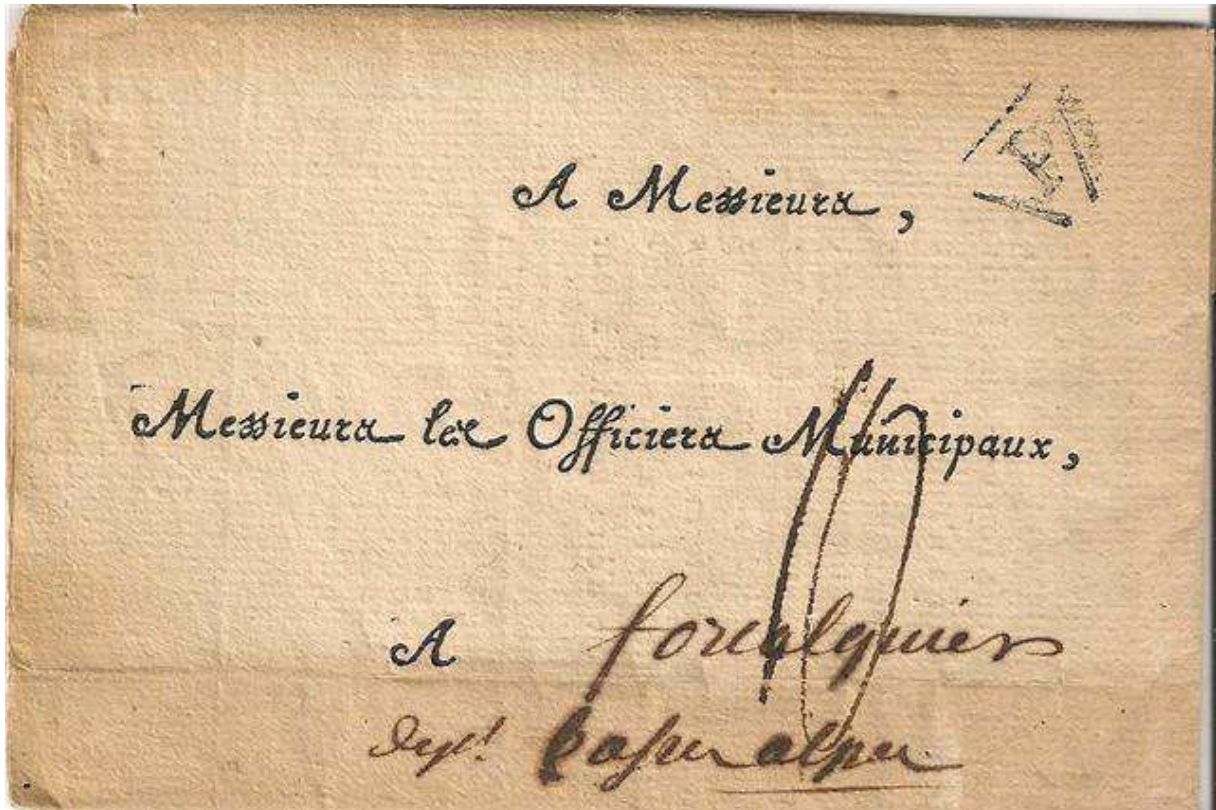 P
A Messieurs,
Messieurs les Officiers Municipaux,
10
A forcalquier
dept. basses alpes